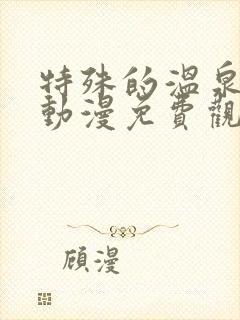 特殊的溫泉
動漫免費觀
顾漫